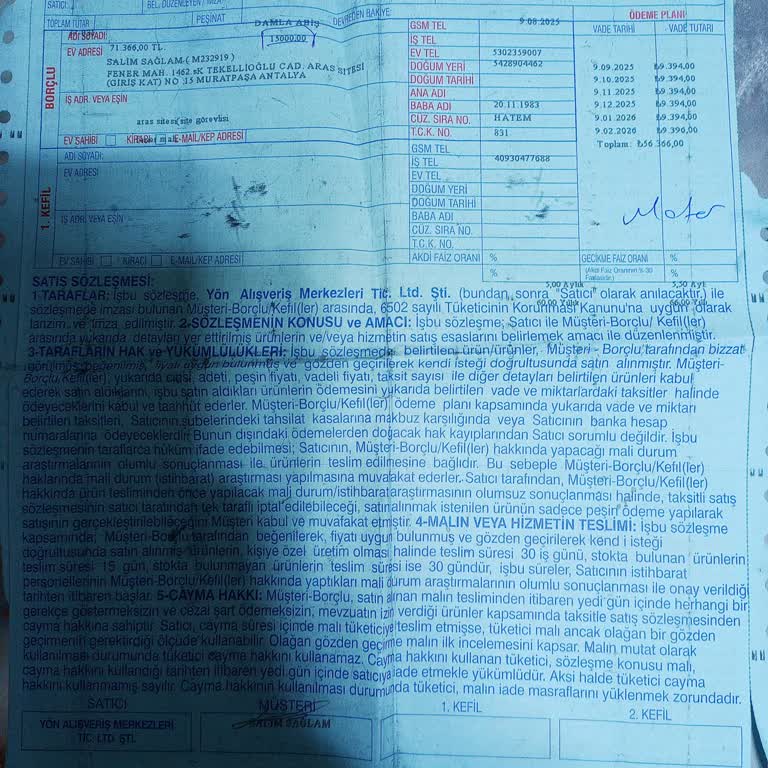 SATICI:
BEL. DÜZENLEYEN İMZA
TOPLAM TUTAR
PEŞİNAT
DAMLA ABİŞ
DEVREDEN BAKİYE:
15000.00
ADI SOYADI:
71 366,00 TL.
EV ADRESİ
SALİM SAĞLAM ( M232919 )
FENER MAH. 1462 sK TEKELLİOĞLU CAD. ARAS SİTESİ
(GİRİŞ KAT) NO 15 MURATPAŞA ANTALYA
BORÇLU
İŞ ADR. VEYA EŞİN
aras sitesi(site görevlisi
EV SAHİBİ
KİRACI
E-MAİL/KEP ADRESİ
GSM TEL
9.08.2025
İŞ TEL
EV TEL
5302359007
DOĞUM YERİ
5428904462
DOĞUM TARİHİ
ANA ADI
BABA ADI
20.11.1983
CÜZ. SIRA NO.
HATEM
T.C.K. NO.
831
ÖDEME PLANI
VADE TARİHİ
VADE TUTARI
9.09.2025 ₺9.394,00
9.10.2025 ₺9.394,00
9.11.2025 ₺9.394,00
9.12.2025 ₺9.394,00
9.01.2026 ₺9.394,00
9.02.2026 ₺9.396,00
Toplam: ₺56 366,00
ADI SOYADI:
EV ADRESİ
1. KEFİL
İŞ ADR. VEYA EŞİN
EV SAHİBİ
KİRACI
E-MAİL/KEP ADRESİ
GSM TEL
İŞ TEL
40930477688
EV TEL
DOĞUM YERİ
DOĞUM TARİHİ
BABA ADI
CÜZ. SIRA NO.
T.C.K. NO.
AKDİ FAİZ ORANI
%
%
GECİKME FAİZ ORANI
%
%
5,00 Aylık
60,00 Yıllık
66,00
SATIŞ SÖZLEŞMESİ:
1-TARAFLAR: İşbu sözleşme, Yön Alışveriş Merkezleri Tic. Ltd. Şti. (bundan sonra "Satıcı" olarak anılacaktır.) ile
sözleşmede imzası bulunan Müşteri-Borçlu/Kefil(ler) arasında, 6502 sayılı Tüketicinin Korunması Kanunu'na uygun olarak
tanzim ve imza edilmiştir. 2-SÖZLEŞMENİN KONUSU ve AMACI: İşbu sözleşme; Satıcı ile Müşteri-Borçlu/ Kefil(ler)
arasında yukarıda detayları yer ettirilmiş ürünlerin ve/veya hizmetin satış esaslarını belirlemek amacı ile düzenlenmiştir.
3-TARAFLARIN HAK ve YÜKÜMLÜLÜKLERİ: İşbu sözleşmede belirtilen ürün/ürünler, Müşteri - Borçlu tarafından bizzat
görülmüş, beğenilmiş, fiyatı uygun bulunmuş ve gözden geçirilerek kendi isteği doğrultusunda satın alınmıştır. Müşteri-
Borçlu/Kefil(ler), yukarıda cinsi, adeti, peşin fiyatı, vadeli fiyatı, taksit sayısı ile diğer detayları belirtilen ürünleri kabul
ederek satın aldıkların, işbu satın aldıkları ürünlerin ödemesini yukarıda belirtilen vade ve miktarlardaki taksitler halinde
ödeyeceklerini kabul ve taahhüt ederler. Müşteri-Borçlu/Kefil(ler) ödeme planı kapsamında yukarıda vade ve miktarı
belirtilen taksitleri, Satıcının şubelerindeki tahsilat kasalarına makbuz karşılığında veya Satıcının banka hesap
numaralarına ödeyeceklerdir. Bunun dışındaki ödemelerden doğacak hak kayıplarından Satıcı sorumlu değildir. İşbu
sözleşmenin taraflarca hüküm ifade edebilmesi; Satıcının, Müşteri-Borçlu/Kefil(ler) hakkında yapacağı mali durum
araştırmalarının olumlu sonuçlanması ile ürünlerin teslim edilmesine bağlıdır. Bu sebeple Müşteri-Borçlu/Kefil(ler)
haklarında mali durum (istihbarat) araştırması yapılmasına muvafakat ederler. Satıcı tarafından, Müşteri-Borçlu/Kefil(ler)
hakkında ürün tesliminden önce yapılacak mali durum/istihbarat araştırmasının olumsuz sonuçlanması halinde, taksitli satış
sözleşmesinin satıcı tarafından tek taraflı iptal edilebileceği, satın alınmak istenilen ürünün sadece peşin ödeme yapılarak
satışının gerçekleştirilebileceğini Müşteri kabul ve muvafakat etmiştir. 4-MALIN VEYA HİZMETİN TESLİMİ: İşbu sözleşme
kapsamında; Müşteri-Borçlu tarafından beğenilerek, fiyatı uygun bulunmuş ve gözden geçirilerek kend i isteği
doğrultusunda satın alınmış ürünlerin, kişiye özel üretim olması halinde teslim süresi 30 iş günü, stokta bulunan ürünlerin
teslim süresi 15 gün, stokta bulunmayan ürünlerin teslim süresi ise 30 gündür, işbu süreler, Satıcının istihbarat
personellerinin Müşteri-Borçlu/Kefil(ler) hakkında yaptıkları mali durum araştırmalarının olumlu sonuçlanması ile onay verildiği
tarihten itibaren başlar. 5-CAYMA HAKKI: Müşteri-Borçlu, satın alınan malın tesliminden itibaren yedi gün içinde herhangi bir
gerekçe göstermeksizin ve cezai şart ödemeksizin, mevzuatın izin verdiği ürünler kapsamında taksitle satış sözleşmesinden
cayma hakkına sahiptir. Satıcı, cayma süresi içinde malı tüketiciye teslim etmişse, tüketici malı ancak olağan bir gözden
geçirmenin gerektirdiği ölçüde kullanabilir. Olağan gözden geçirme malın ilk incelemesini kapsar. Malın mutat olarak
kullanılması durumunda tüketici cayma hakkını kullanamaz. Cayma hakkını kullanan tüketici, sözleşme konusu malı,
cayma hakkını kullandığı tarihten itibaren yedi gün içinde satıcıya iade etmekle yükümlüdür. Aksi halde tüketici cayma
hakkını kullanmamış sayılır. Cayma hakkının kullanılması durumunda tüketici, malın iade masraflarını yüklenmek zorundadır.
SATICI
MÜŞTERİ
1. KEFİL
2. KEFİL
YÖN ALIŞVERİŞ MERKEZLERİ
TİC. LTD. ŞTİ.
SALİM SAĞLAM